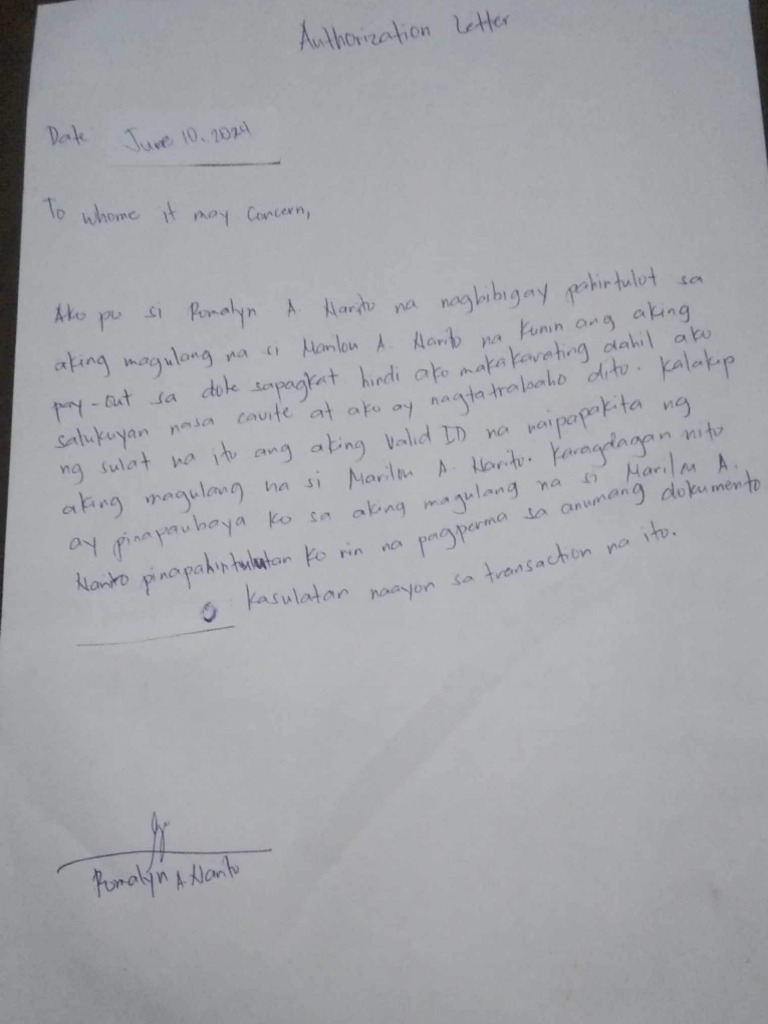 Authorization Letter
Date June 10, 2024
To whome it may concern,
Ako po si Romalyn A. Narito na nagbibigay pahintulot sa
aking magulang na si Marilou A. Narito na kunin ang aking
pay-out sa dole sapagkat hindi ako makakarating dahil ako
salukuyan nasa cavite at ako ay nagtatrabaho dito. Kalakip
ng sulat na ito ang aking Valid ID na naipapakita ng
aking magulang na si Marilou A. Narito. Karagdagan nito
ay pinapaubaya ko sa aking magulang na si Marilou A.
Narito pinapahintulutan ko rin na pagperma sa anumang dokumento
o kasulatan naayon sa transaction na ito.
Romalyn A. Narito